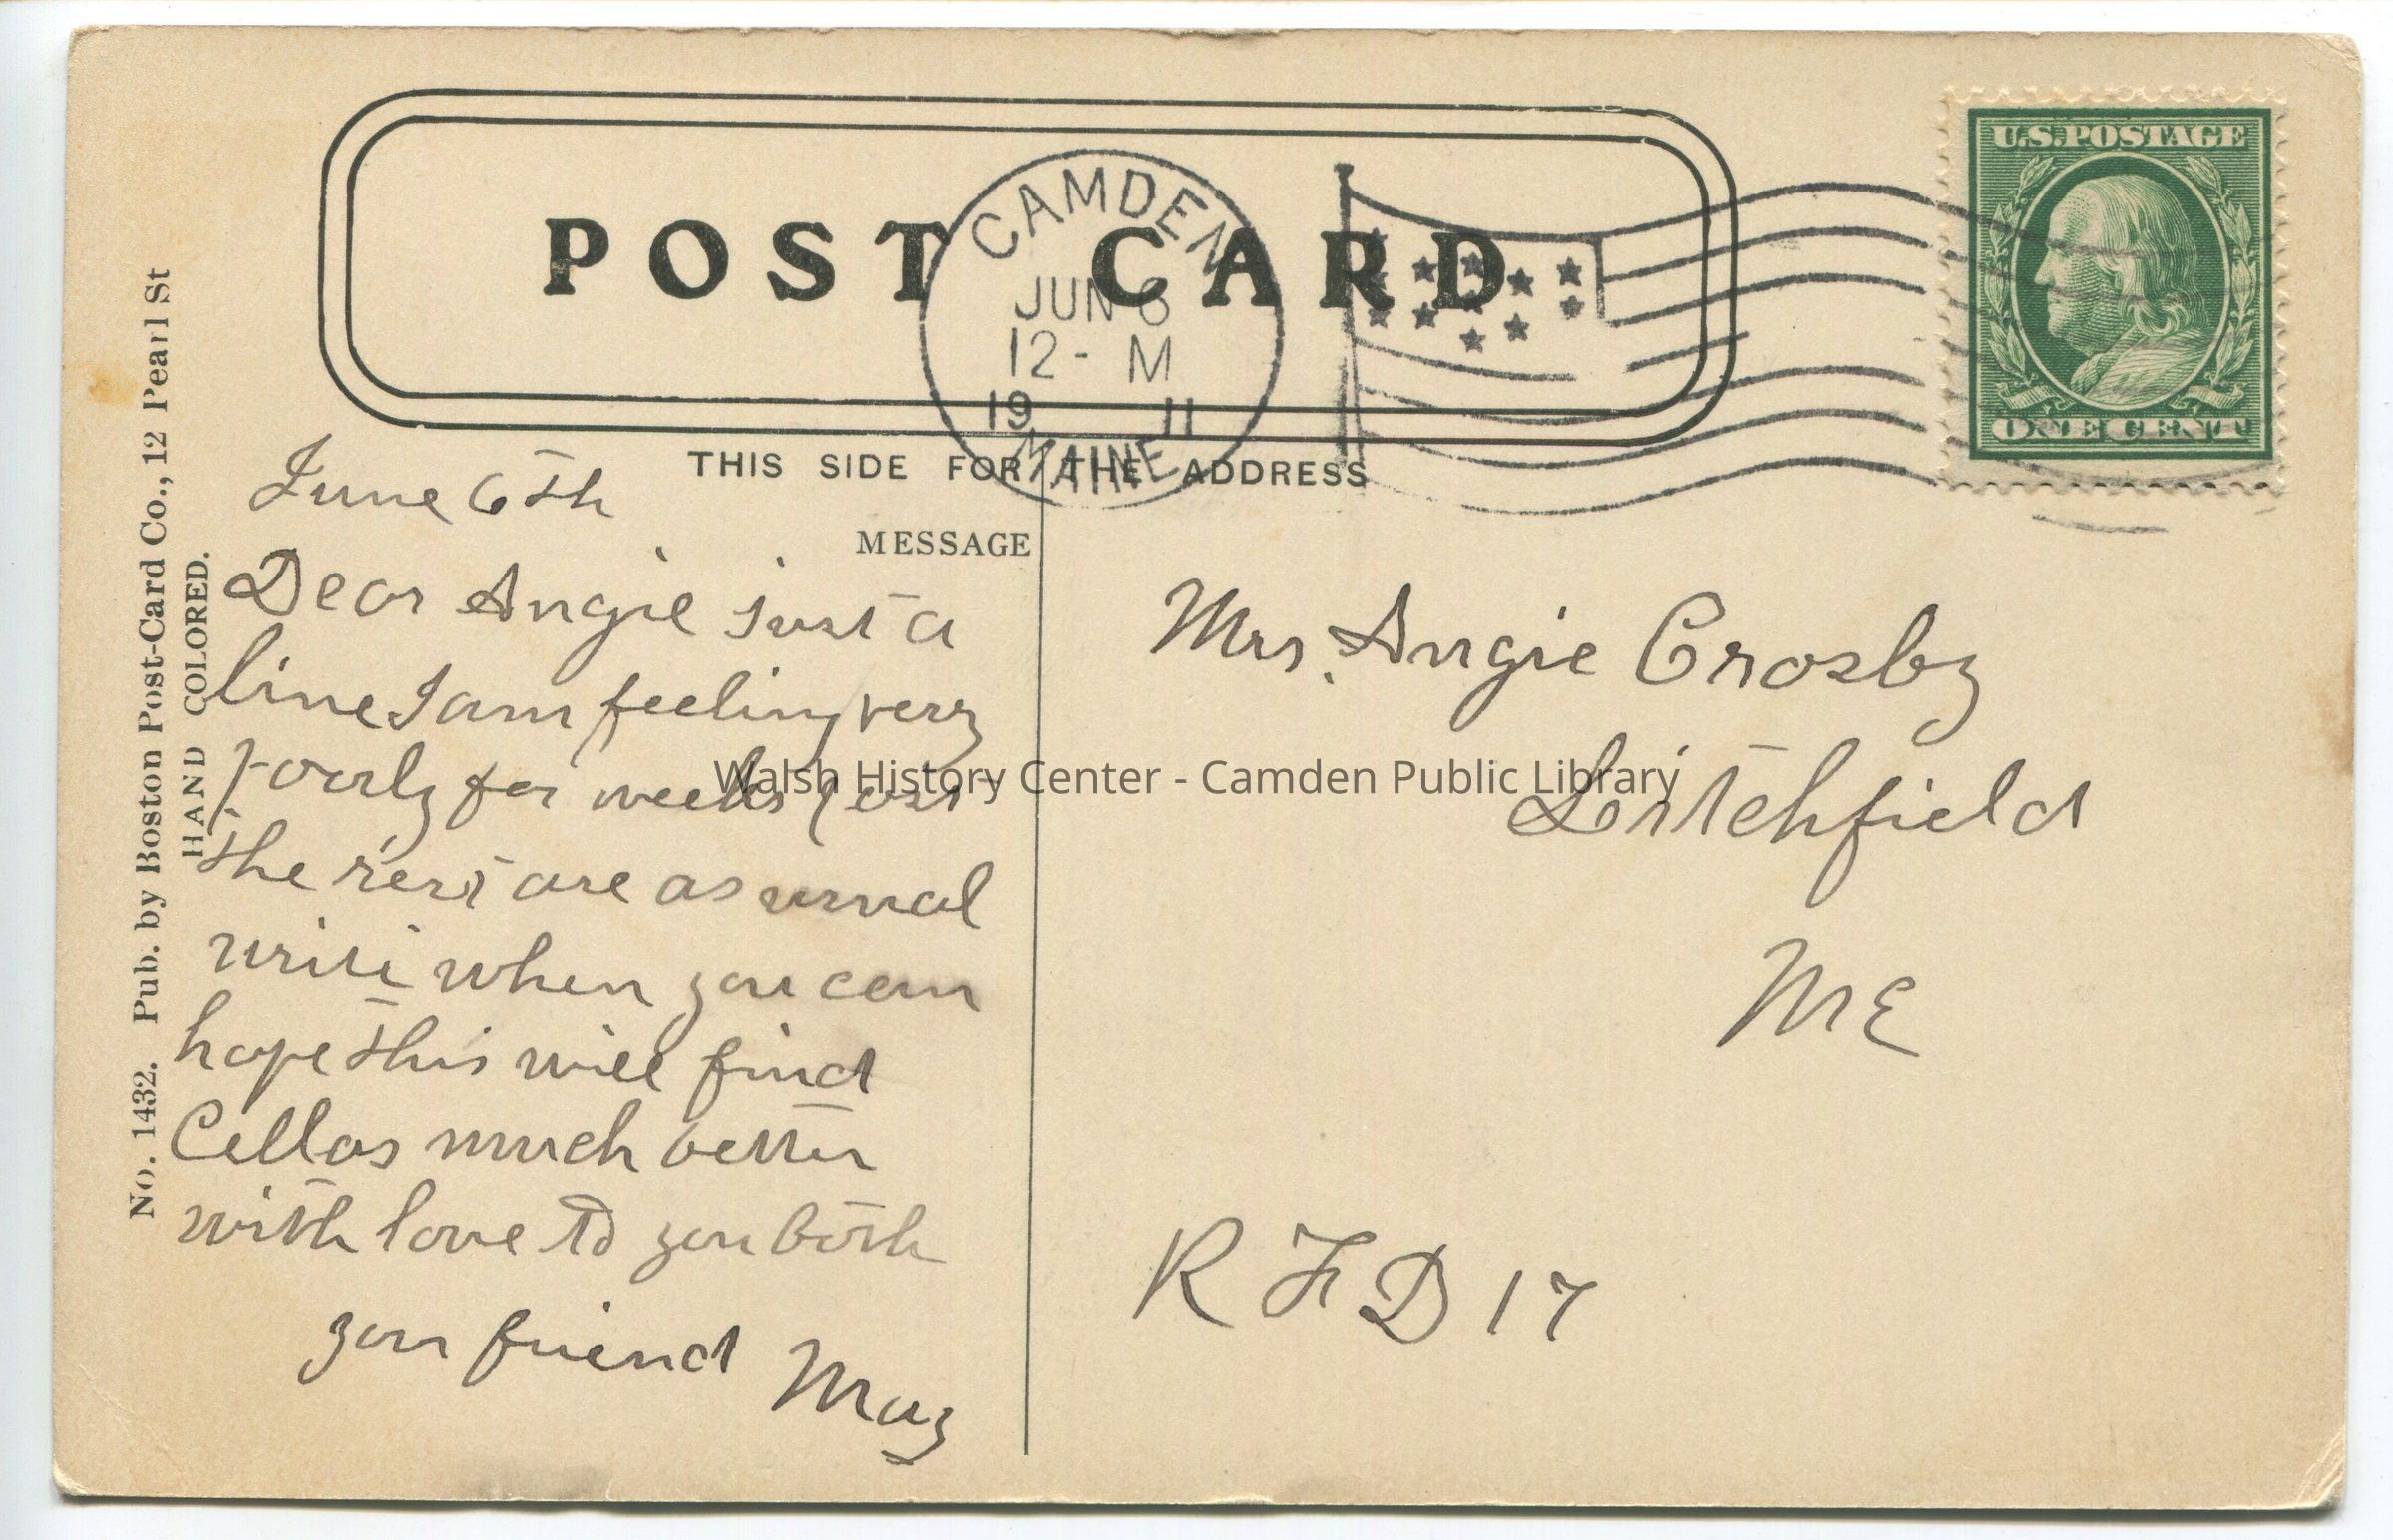 POST CARD
CAMDEN
JUN 6
12- M
19 11
MAINE
U.S. POSTAGE
ONE CENT
THIS SIDE FOR THE ADDRESS
MESSAGE
No. 1432. Pub. by Boston Post-Card Co., 12 Pearl St
HAND COLORED.
June 6th
Dear Angie just a
line I am feeling very
poorly for weeks past
the rest are as usual
write when you can
hope this will find
Cellas much better
with love to you both
your friend May
Mrs. Angie Crosby
Litchfield
ME
R F D 17
Walsh History Center - Camden Public Library